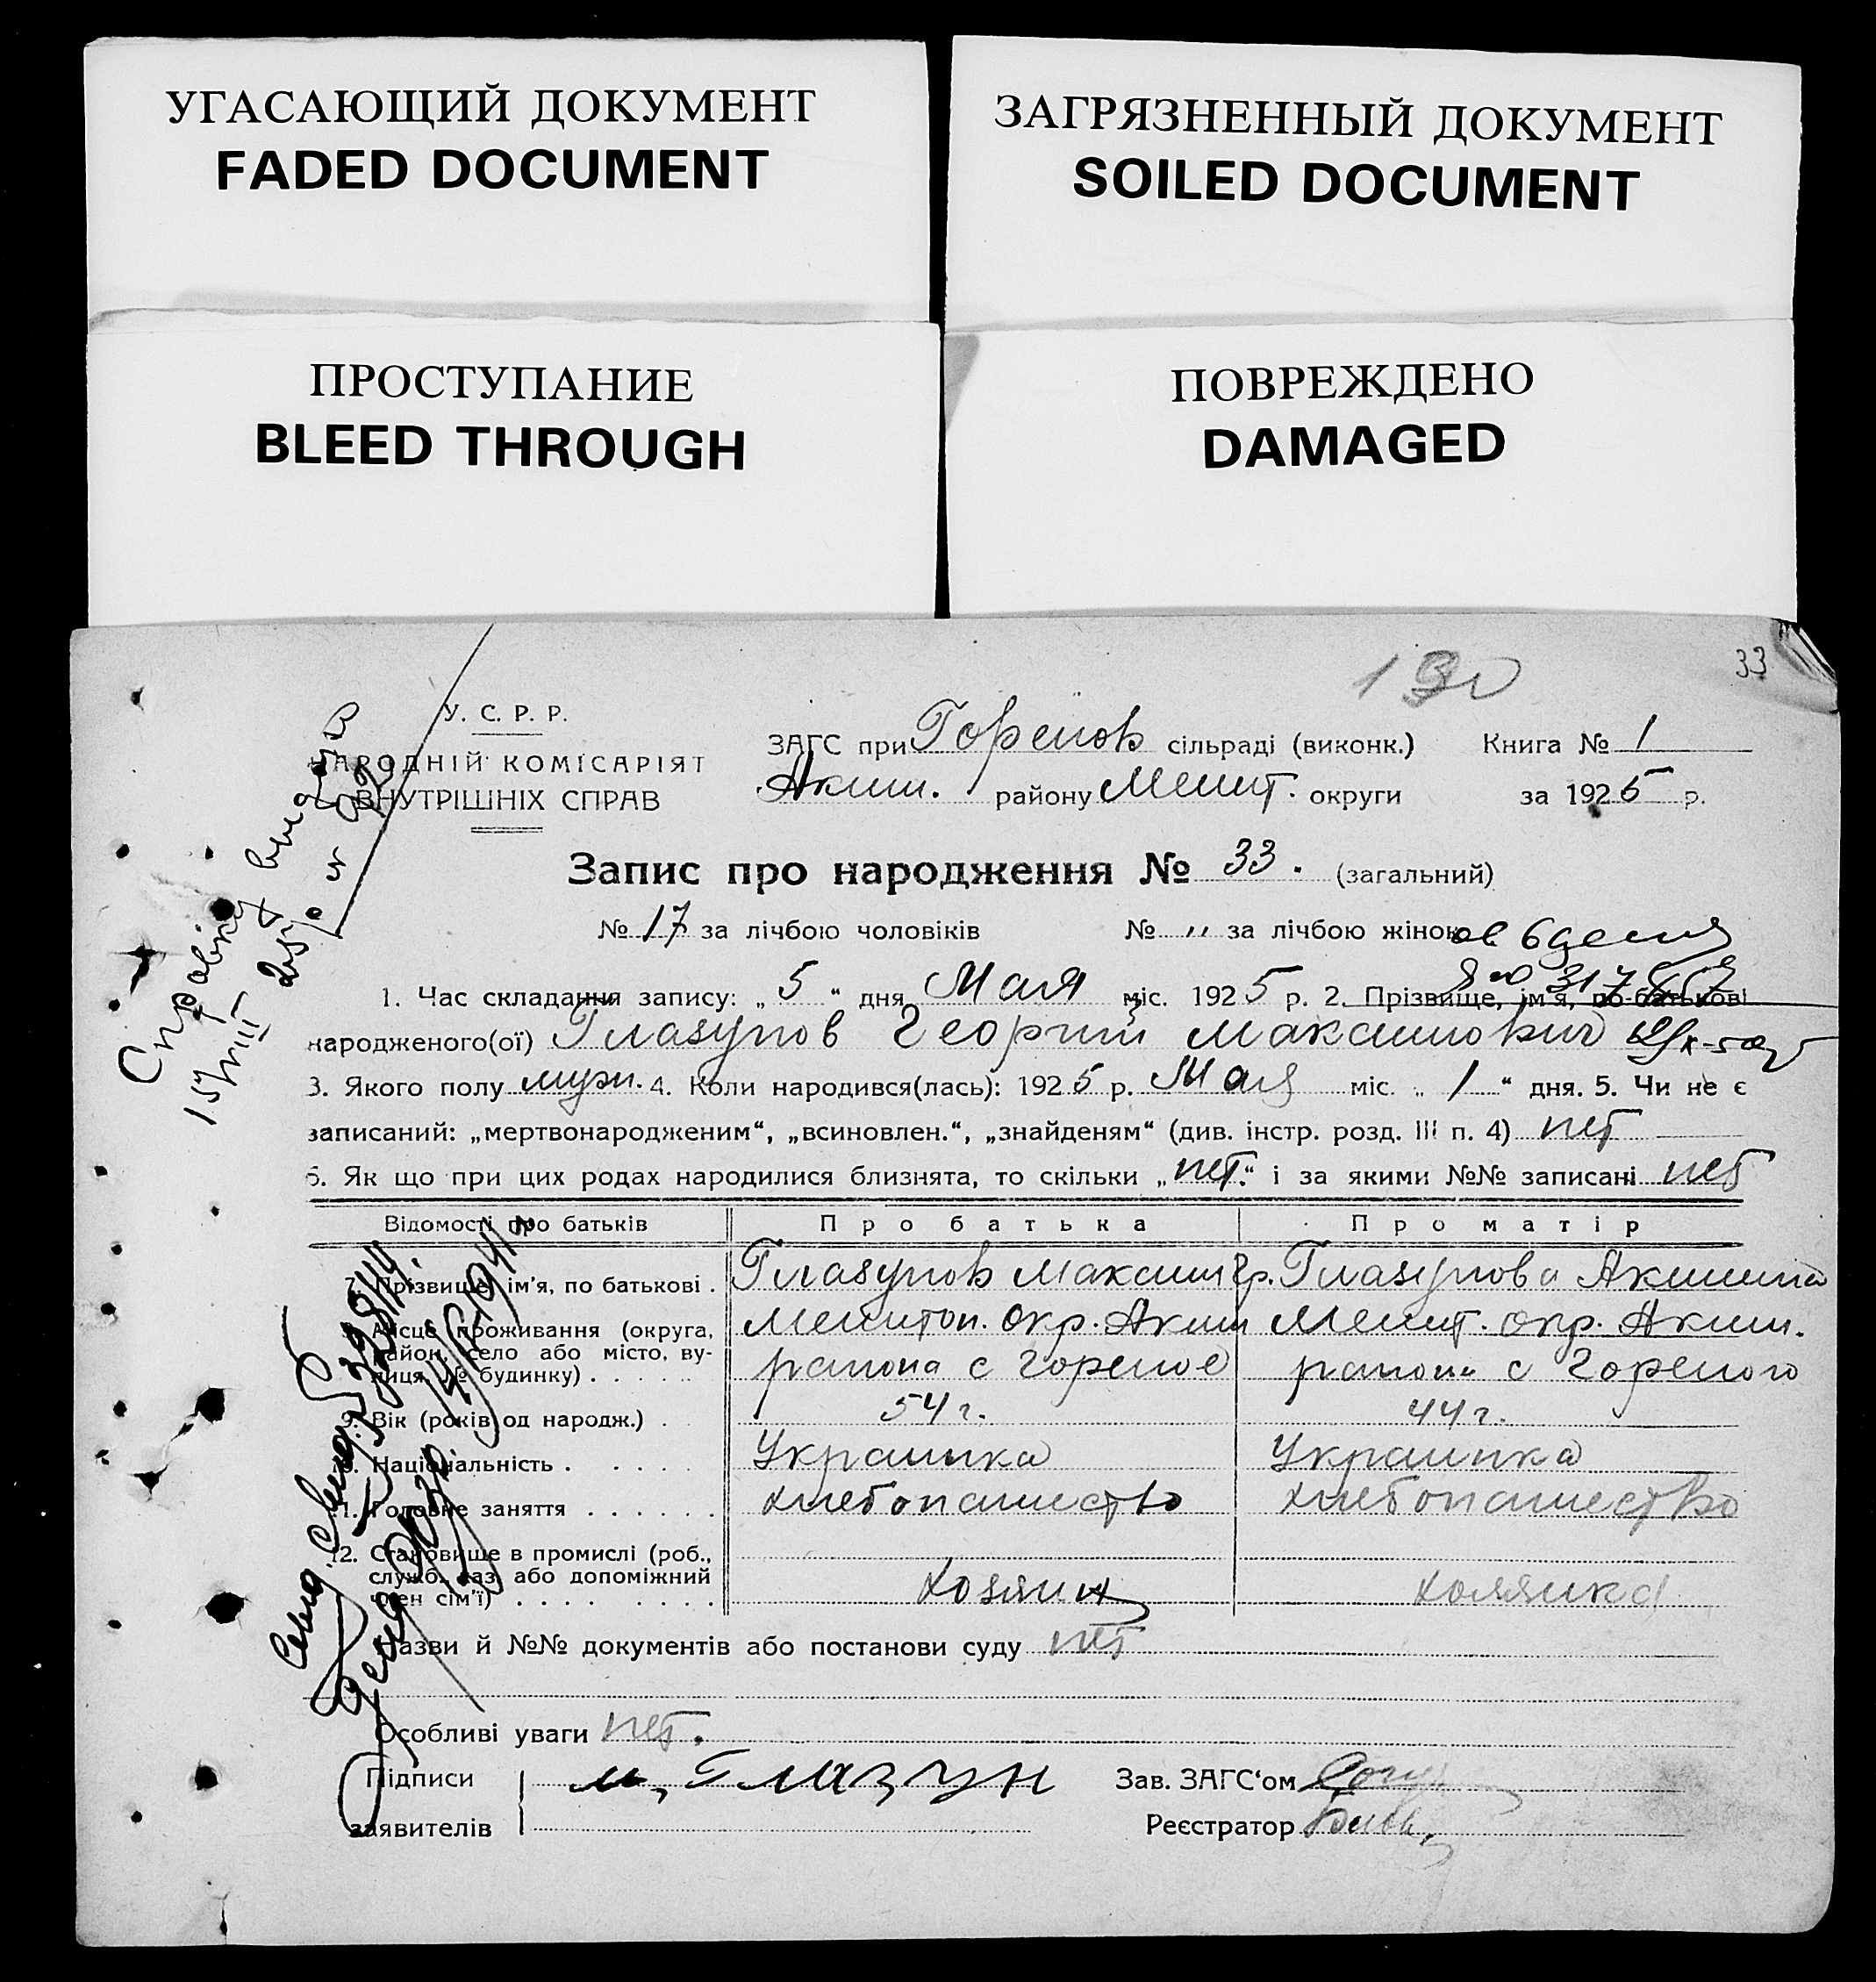 УГАСАЮЩИЙ ДОКУМЕНТ
FADED DOCUMENT
ЗАГРЯЗНЕННЫЙ ДОКУМЕНТ
SOILED DOCUMENT
ПРОСТУПАНИЕ
BLEED THROUGH
ПОВРЕЖДЕНО
DAMAGED
33
У. С. Р. Р.
НАРОДНІЙ КОМІСАРІЯТ
ВНУТРІШНІХ СПРАВ
ЗАГС при Горенов сільраді (виконк.) Книга № 1
Аким. району Мелит. округи за 1925 р.
Запис про народження № 33. (загальний)
№ 17 за лічбою чоловіків № „ за лічбою жінок
1. Час складання запису: „5“ дня Мая міс. 1925 р. 2. Прізвище, ім'я, по-батькові
народженого(ої) Глазунов Георгий Максимович
3. Якого полу муж. 4. Коли народився(лась): 1925 р. Мая міс. „1“ дня. 5. Чи не є
записаний: „мертвонародженим“, „всиновлен.“, „знайденям“ (див. інстр. розд. III п. 4) нет
6. Як що при цих родах народилися близнята, то скільки „нет.“ і за якими №№ записані нет
Відомості про батьків Про батька Про матір
7. Прізвище, ім'я, по батькові . Глазунов Максим Гр. Глазунова Акилина
8. Місце проживання (округа, район, село або місто, вулиця, № будинку) . Мелитоп. окр. Аким Мелит. окр. Аким.
района с Гореное района с Гореного
9. Вік (років од народж.) . 54 г. 44 г.
10. Національність . Украинка Украинка
11. Головне заняття . хлебопашество хлебопашество
12. Становище в промислі (роб., служб., хаз. або допоміжний член сім'ї) . хозяин хозяйка
Назви й №№ документів або постанови суду нет
Особливі уваги нет.
Підписи м, Глазун Зав. ЗАГС'ом
заявителів Реєстратор
Справку